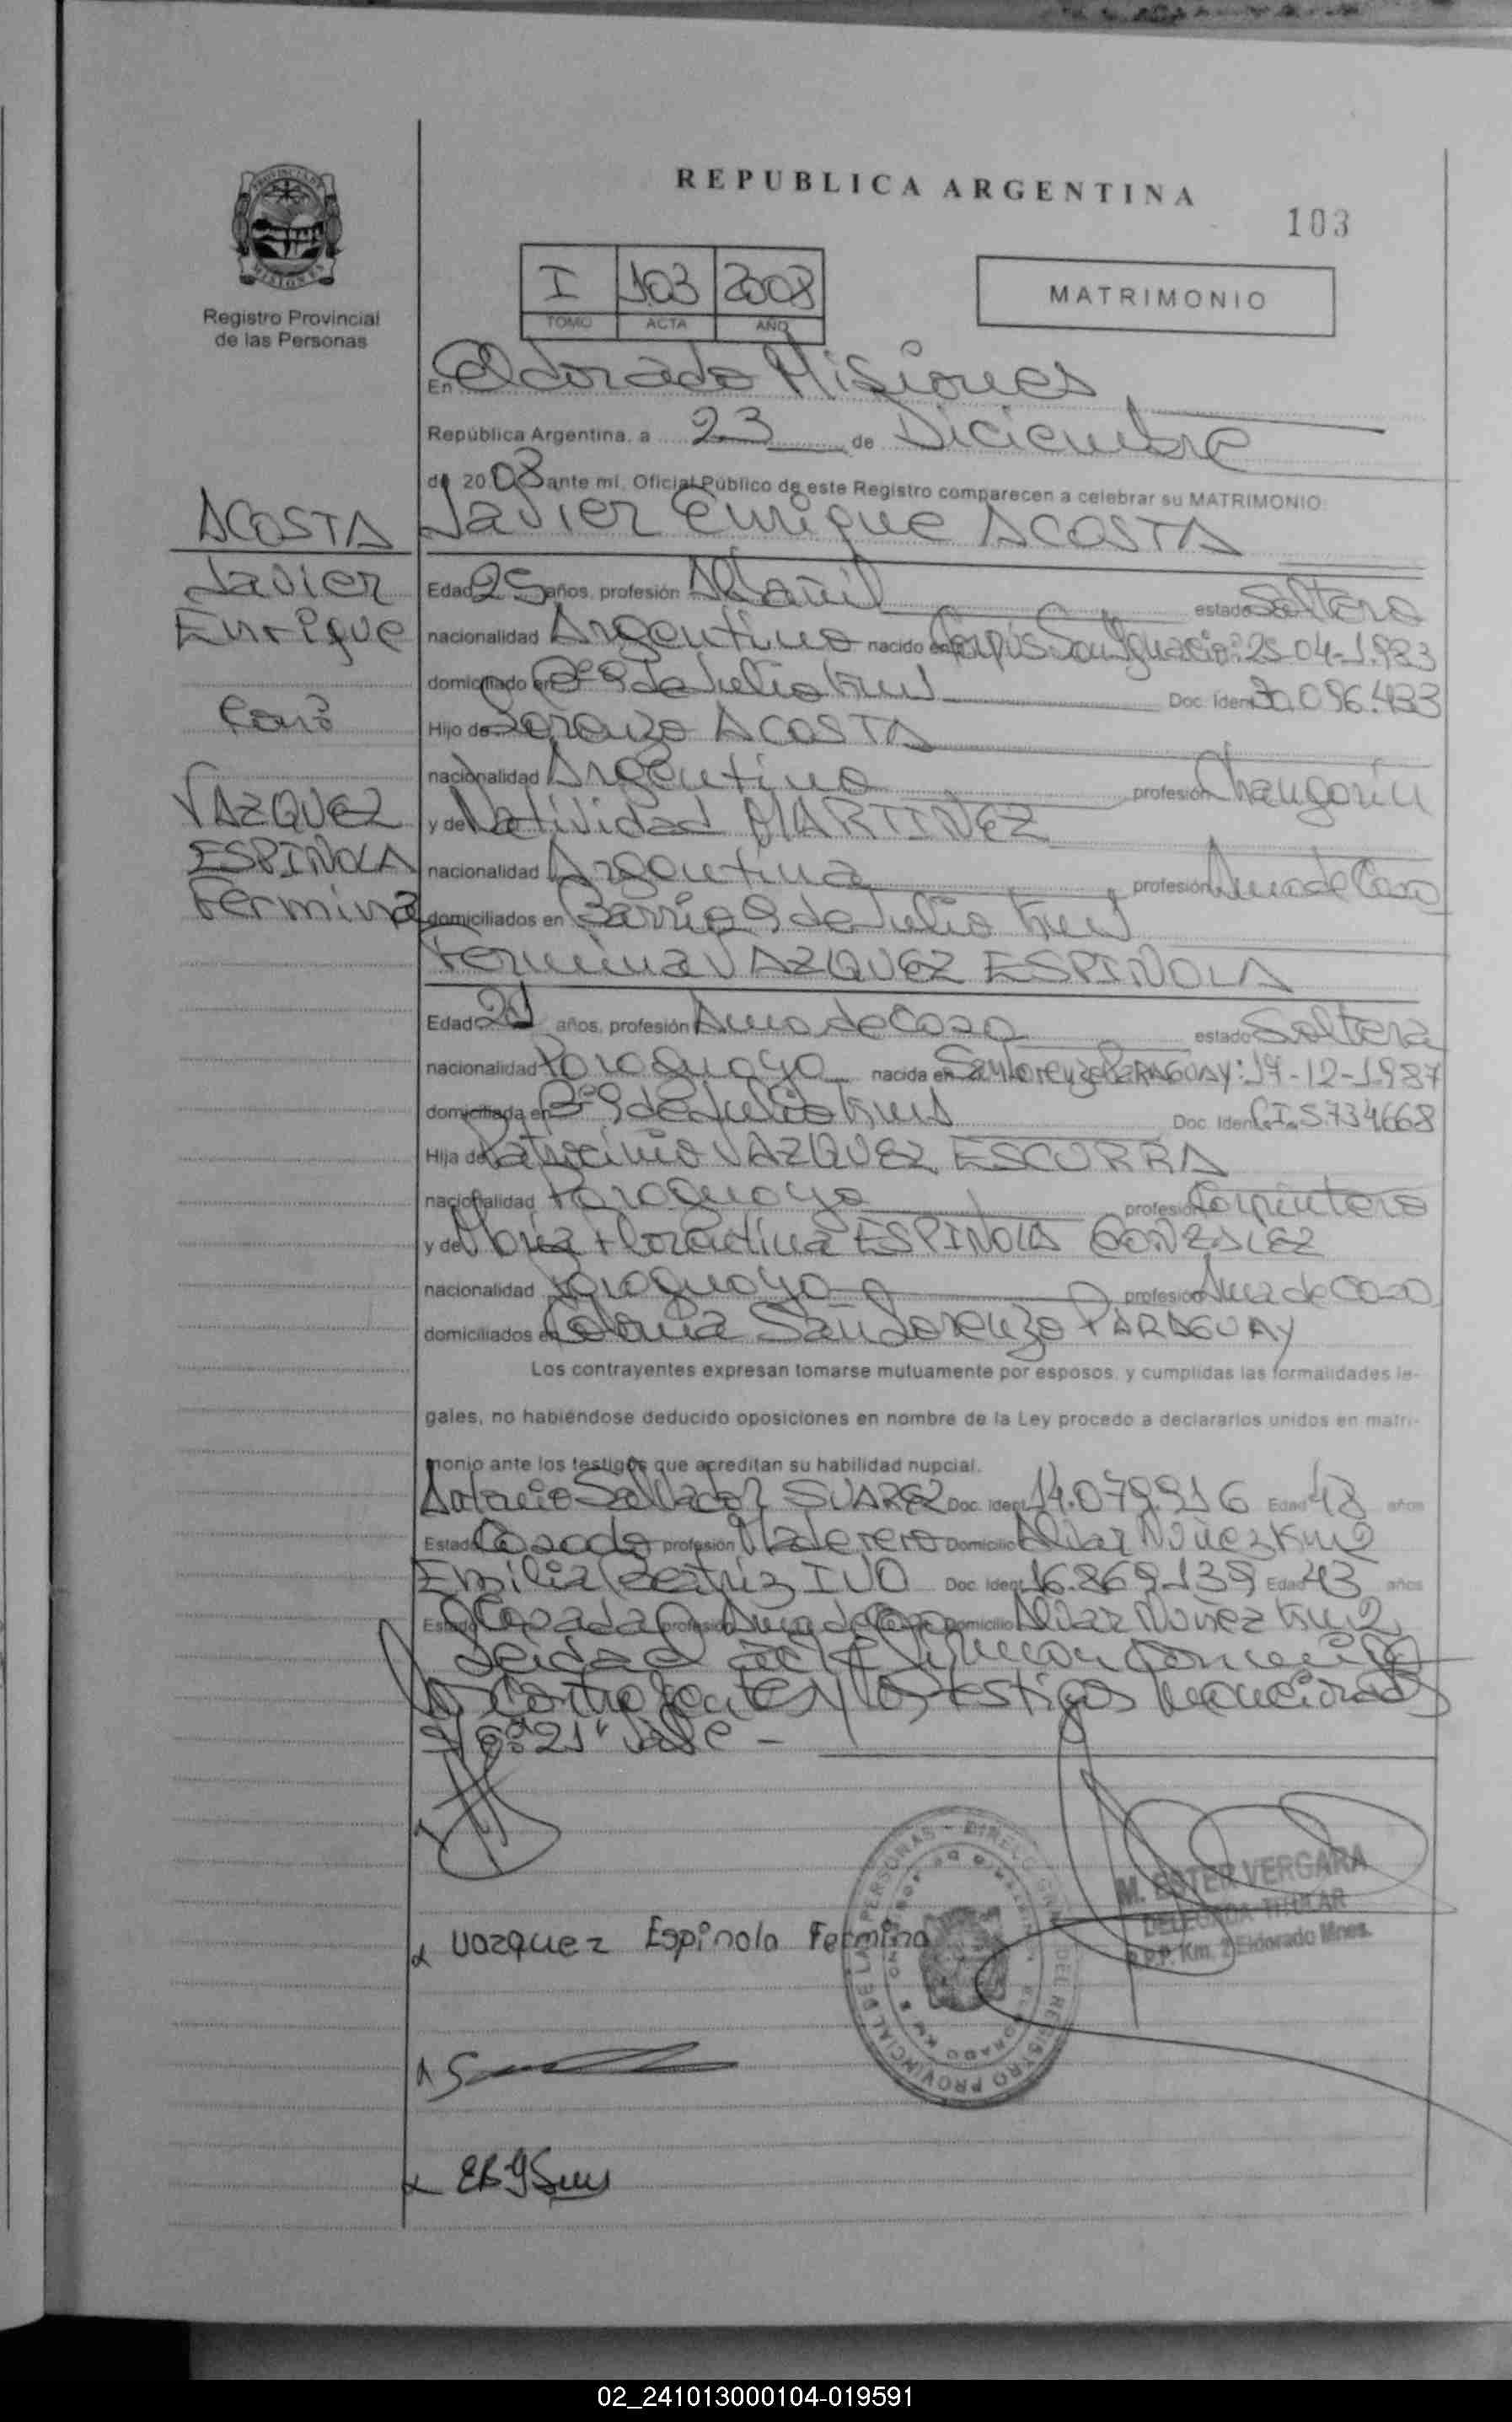 REPUBLICA ARGENTINA
103
PROVINCIA DE
MISIONES
Registro Provincial
de las Personas
I 103 2008
TOMO ACTA AÑO
MATRIMONIO
En Eldorado Misiones
República Argentina, a 23 de Diciembre
de 2008 ante mí, Oficial Público de este Registro comparecen a celebrar su MATRIMONIO:
ACOSTA
Javier
Enrique
Con:
VAZQUEZ
ESPINOLA
Fermina
Javier Enrique ACOSTA
Edad 25 años, profesión Albañil estado Soltero
nacionalidad Argentino nacido en Corpus San Ignacio: 25-04-1.983
domiciliado en Bº 9 de Julio Doc. Ident. 30.096.433
Hijo de Lorenzo ACOSTA
nacionalidad Argentino profesión Changarín
y de Natividad MARTINEZ
nacionalidad Argentina profesión Ama de Casa
domiciliados en Barrio 9 de Julio
Fermina VAZQUEZ ESPINOLA
Edad 21 años, profesión Ama de Casa estado Soltera
nacionalidad Paraguaya nacida en San Lorenzo PARAGUAY: -12-1.987
domiciliada en Bº 9 de Julio Doc. Ident. C.I. 5.734.668
Hija de Patrocinio VAZQUEZ ESCURRA
nacionalidad Paraguayo profesión Carpintero
y de María Florentina ESPINOLA GONZALEZ
nacionalidad Paraguaya profesión Ama de Casa
domiciliados en Colonia San Lorenzo PARAGUAY
Los contrayentes expresan tomarse mutuamente por esposos, y cumplidas las formalidades le-
gales, no habiéndose deducido oposiciones en nombre de la Ley procedo a declararlos unidos en matri-
monio ante los testigos que acreditan su habilidad nupcial.
Antonio Salvador SUAREZ Doc. Ident. 14.079.916 Edad 48 años
Estado Casado profesión Maderero Domicilio Alvar Nuñez Km 2
Emilia Beatriz IVO Doc. Ident. 16.869.139 Edad 43 años
Estado Casada profesión Ama de Casa Domicilio Alvar Nuñez Km 2
Leida el acta firman conmigo
los contrayentes y los testigos mencionados
21" Vale -
Vazquez Espinola Fermina
M. ESTER VERGARA
DELEGADA TITULAR
R.P.P. Km. 2 Eldorado Mnes.
02_241013000104-019591